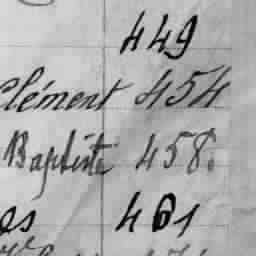 449
Clément 454
Baptiste 458.
es 461